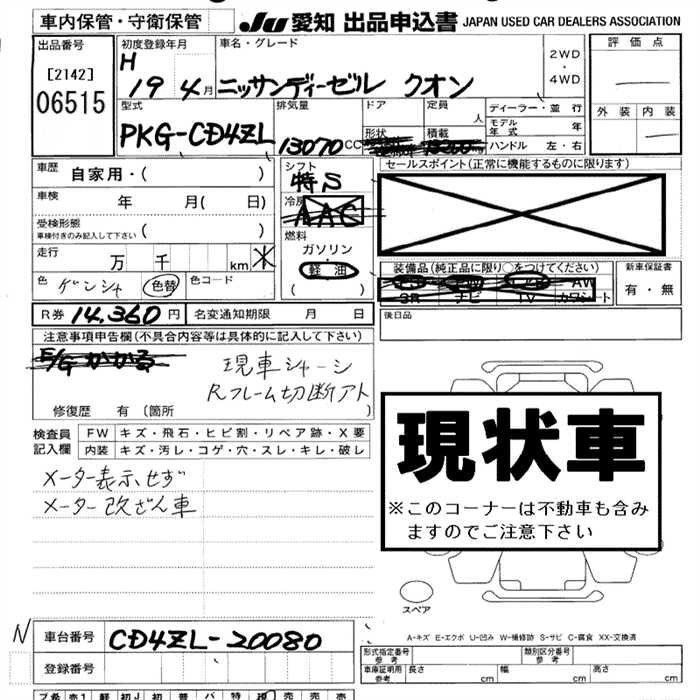 車内保管・守衛保管
JU 愛知 出品申込書 JAPAN USED CAR DEALERS ASSOCIATION
出品番号
[2142]
06515
初度登録年月
H
19 4月
車名・グレード
ニッサンディーゼル クオン
2WD
・
4WD
評価点
外装 内装
型式
PKG-CD4ZL
排気量
13070cc
ドア
形状
定員
人
積載
ディーラー・並行
モデル年式 年
ハンドル 左・右
車歴
自家用・( )
車検
年 月( 日)
受検形態
車検付きのみ記入して下さい ( )
走行
万 千 km ※
色 ゲンシャ 色替 色コード
シフト
特S
冷房
AAC
燃料
ガソリン・
軽油
( )
セールスポイント(正常に機能するものに限ります)
装備品(純正品に限り○をつけてください)
AW
SR ナビ TV カワシート
新車保証書
有・無
R券 14,360円 名変通知期限 月 日
後日品
注意事項申告欄(不具合内容等は具体的に記入して下さい)
E/G かかる
現車シャーシ
Rフレーム切断アト
修復歴 有(箇所 )
検査員
記入欄
FW キズ・飛石・ヒビ割・リペア跡・X要
内装 キズ・汚レ・コゲ・穴・スレ・キレ・破レ
メーター表示せず
メーター改ざん車
現状車
※このコーナーは不動車も含み
ますのでご注意下さい
スペア
A-キズ E-エクボ U-凹み W-補修跡 S-サビ C-腐食 XX-交換済
N
車台番号 CD4ZL-20080
登録番号
形式指定番号
参考
類別区分番号
参考
車庫証明用
参考
長さ cm 幅 cm 高さ cm